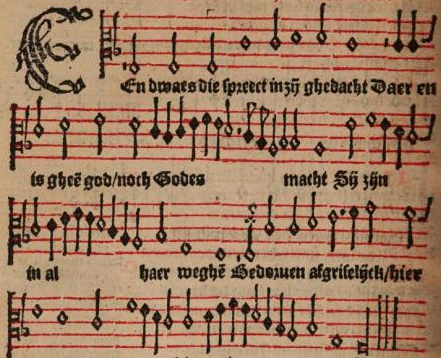 EEn dwaes die spreect in zijn ghedacht Daer en
is gheē god/noch Godes macht Sij zijn
in al haer weghē Bedorven afgriselijck/hier